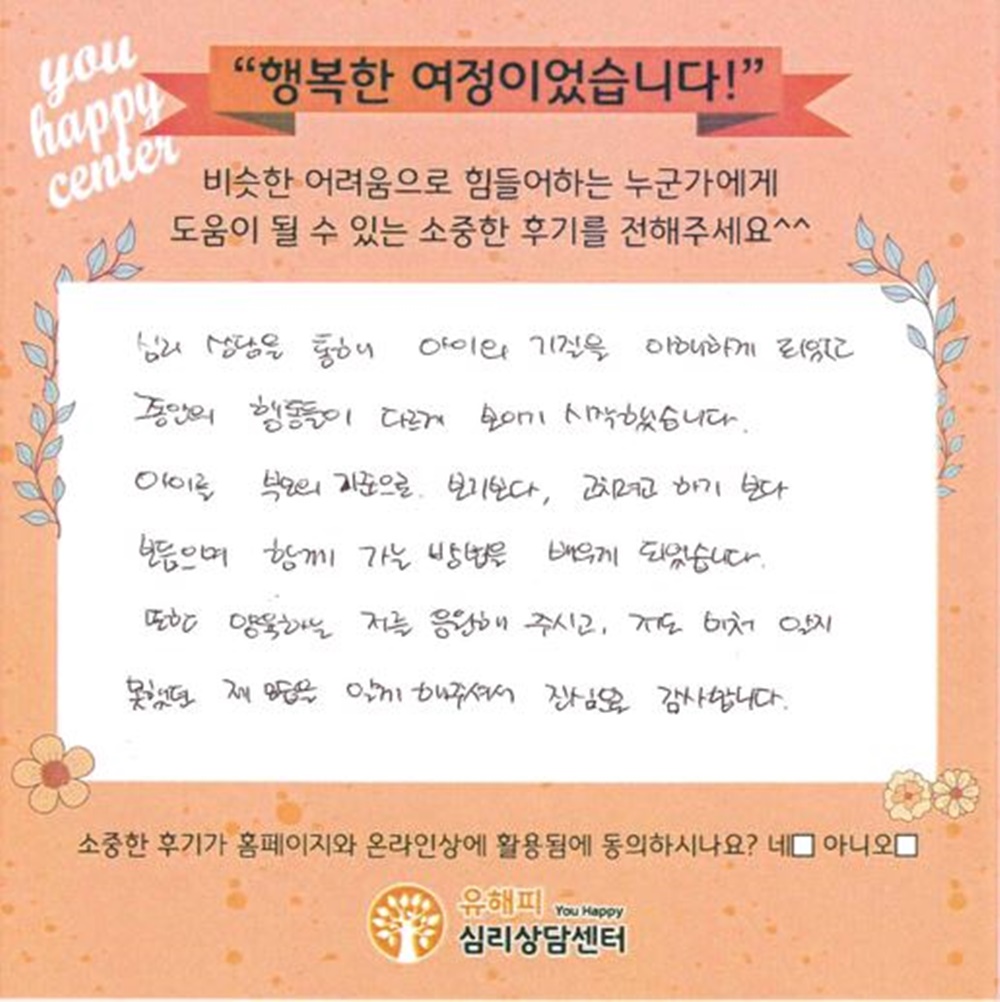 you
happy
center
“행복한 여정이었습니다!”
비슷한 어려움으로 힘들어하는 누군가에게
도움이 될 수 있는 소중한 후기를 전해주세요^^
심리 상담을 통해 아이의 기질을 이해하게 되었고
그동안의 행동들이 다르게 보이기 시작했습니다.
아이를 부모의 기준으로 보기보다, 고치려고 하기 보다
보듬으며 함께 가는 방법을 배우게 되었습니다.
또한 양육하는 저를 응원해 주시고, 저도 미처 알지
못했던 제 마음을 알게 해주셔서 진심으로 감사합니다.
소중한 후기가 홈페이지와 온라인상에 활용됨에 동의하시나요? 네□ 아니오□
유해피 You Happy
심리상담센터